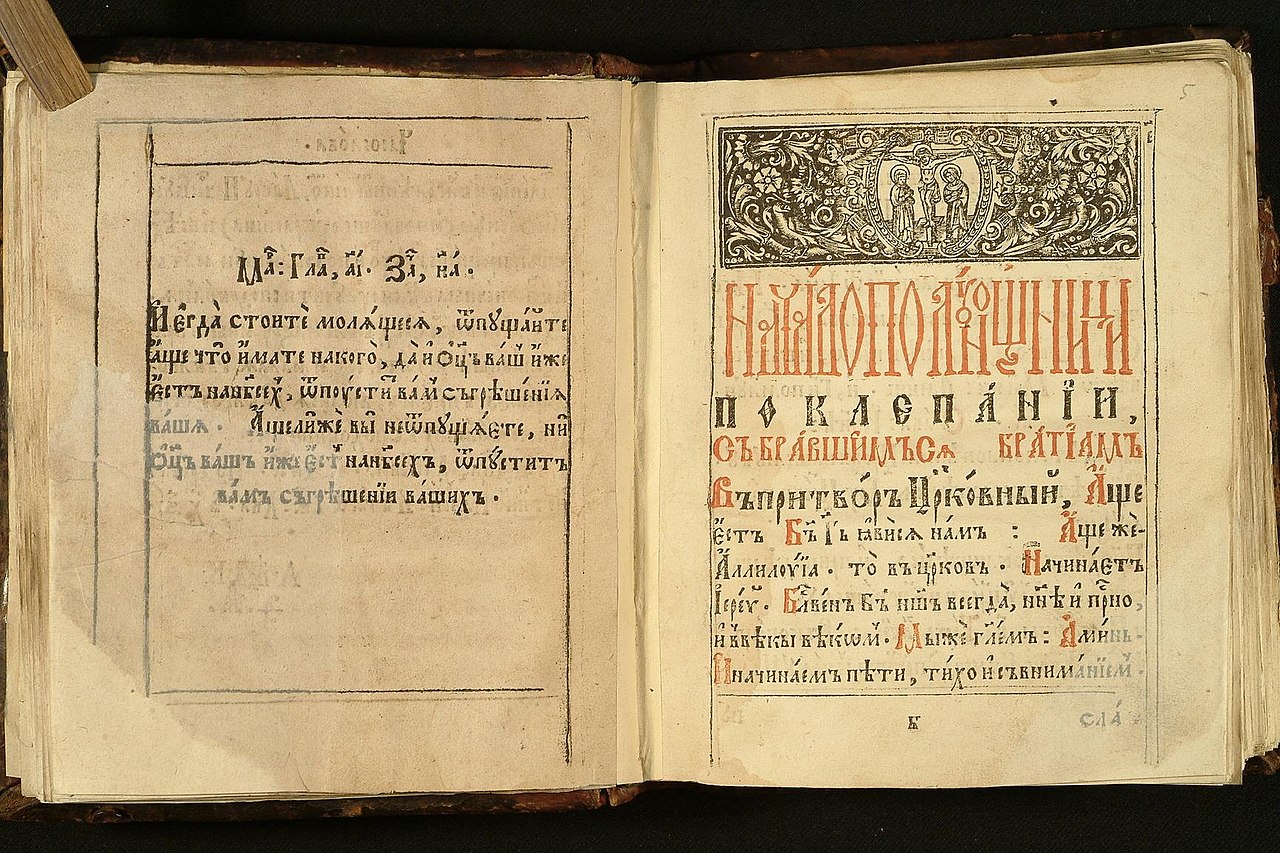 Ма҃: Гла҃, а҃і. За҃, н҃а.
И҆ е҆гда̀ стоитѐ молѧ́щеесѧ, ѿпꙋща́йте
а҆ще что̀ и҆́мате на кого̀, да̀ и҆ ѻ҆ц҃ъ ва́шъ и҆́же
е҆́стъ на нб҃сехъ, ѿпꙋ́ститъ ва́мъ съгрѣше́нїѧ
ва́шѧ. А҆ще ли́же вы̀ не ѿпꙋща́ете, ни
ѻ҆ц҃ъ ва́шъ и҆́же е҆́стъ на нб҃сехъ, ѿпꙋ́ститъ
ва́мъ съгрѣше́нїи ва́шихъ.
5
НАЧАЛО ПОЛꙊ́НОЩНИЦИ
ПО КЛЕПА́НІИ,
СЪБРА́ВШИМЪСѦ БРА́ТІАМЪ
Въ притво́ръ Цр҃ко́вный, А҆́ще
є҆́стъ Бъ҃ Гь҃ ꙗ҆ви́сѧ на́мъ : А҆́ще жѐ-
А҆ллилꙋ́їа. то̀ въ цр҃ковъ. Начина́етъ
І҆ере́й. Блг҃ве́нъ Бъ҃ на́шъ всегда̀, нн҃ѣ и҆ при́сно,
и҆ въ вѣ́кы вѣкѡ́мъ. Мы́ же гл҃емъ : А҆ми́нь.
И начина́емъ пѣ́ти, ти́хо и҆ съ внима́нїемъ.
в҃ сла́